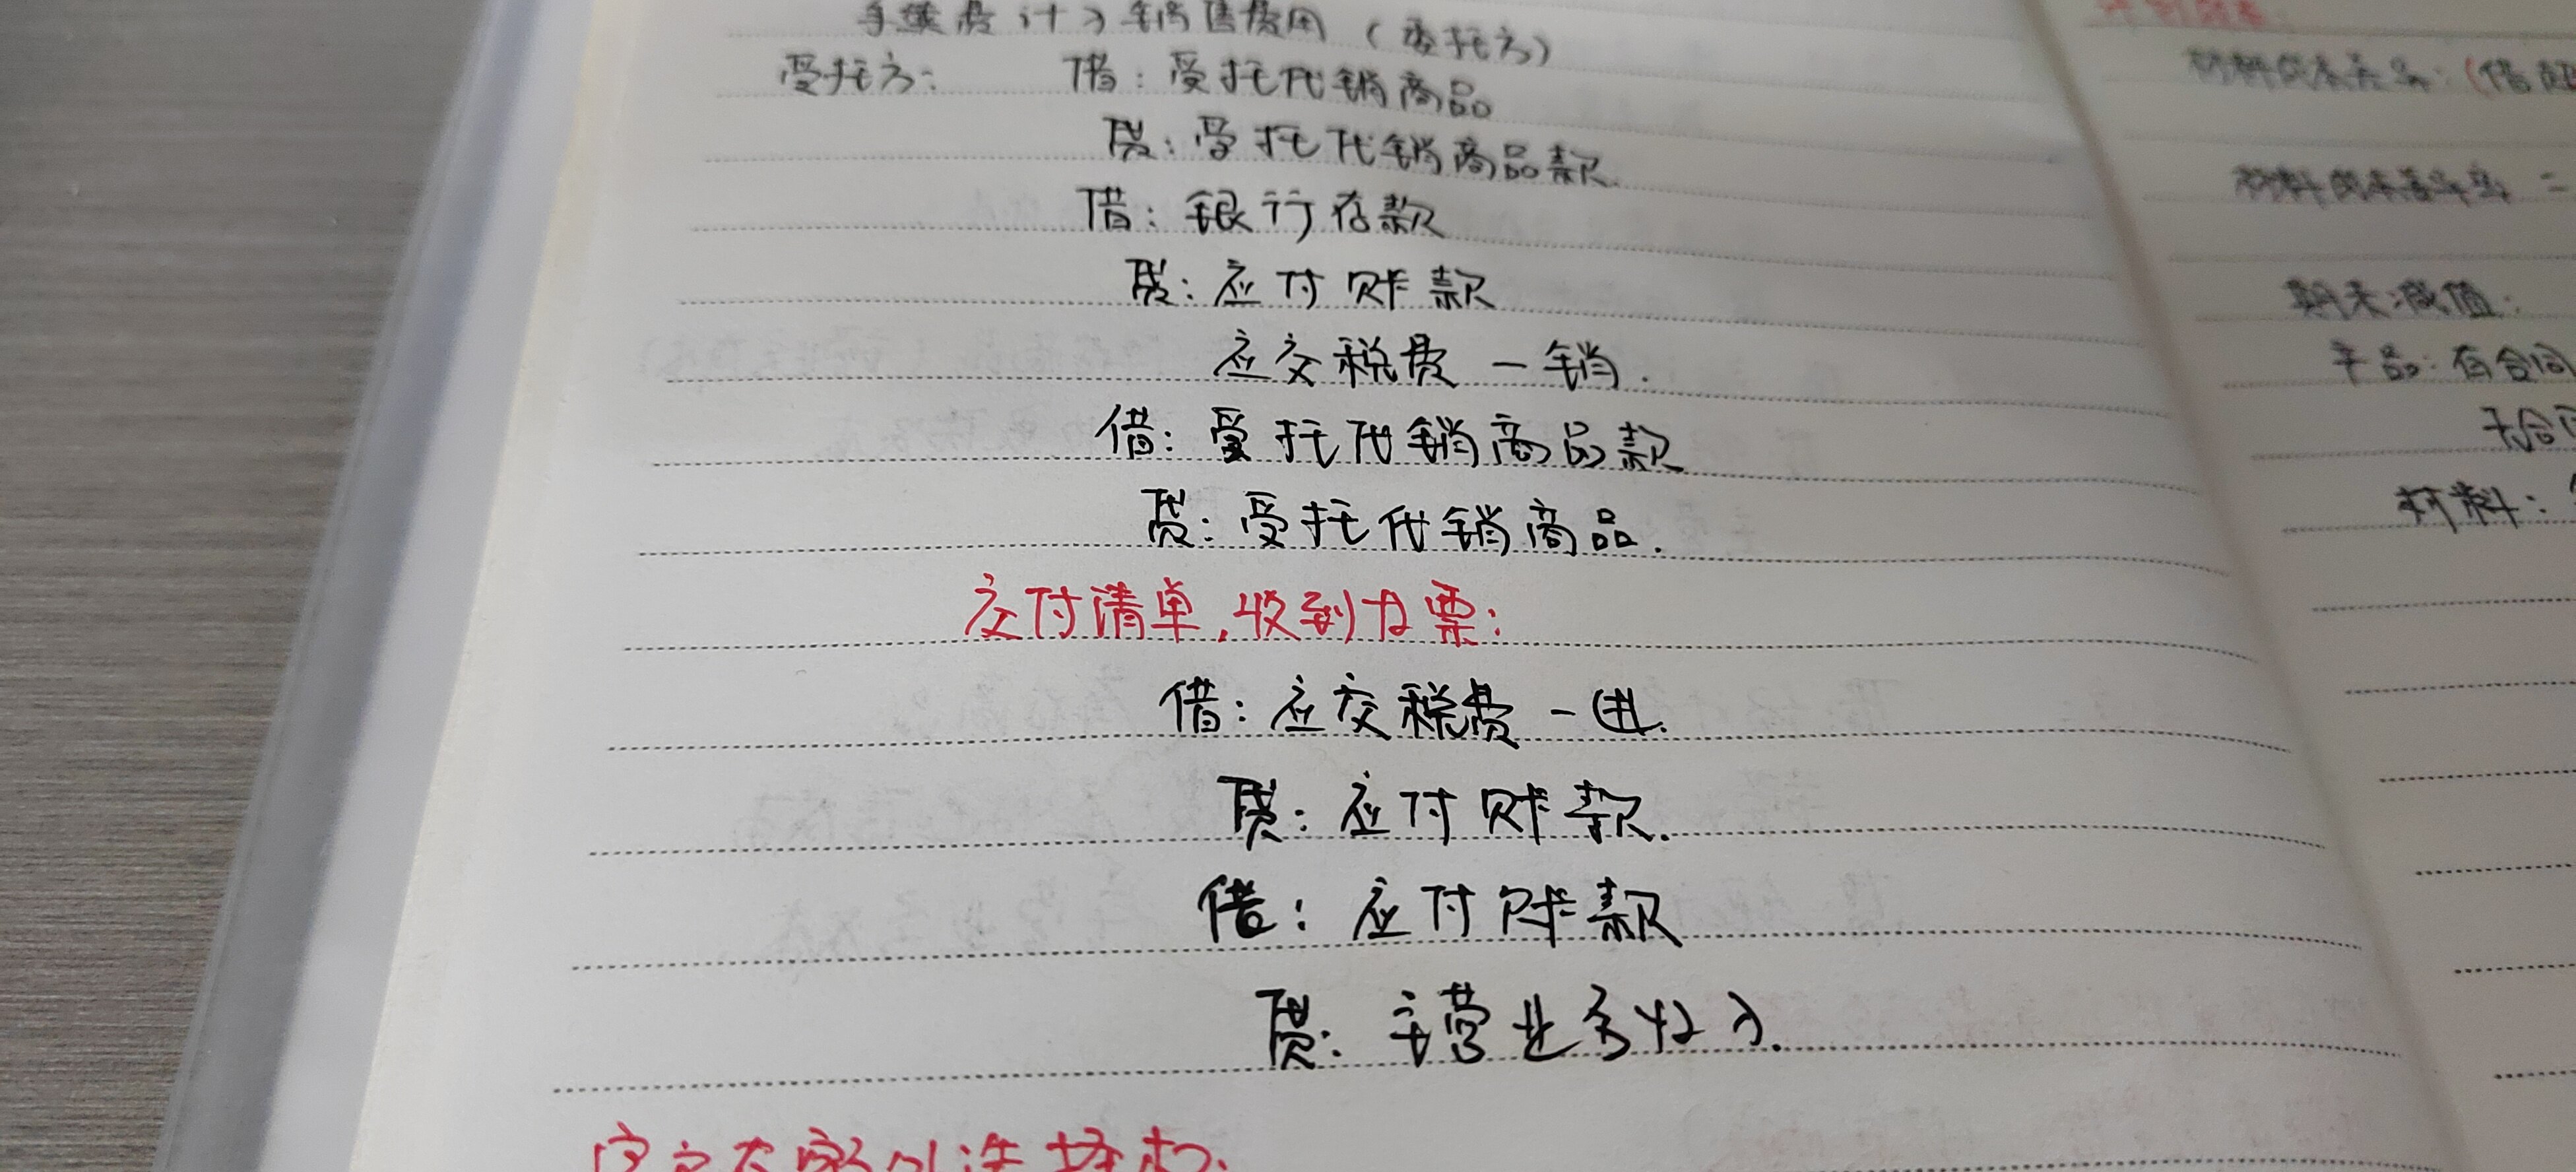 手续费计入销售费用（委托方）
受托方： 借：受托代销商品
贷：受托代销商品款.
借：银行存款
贷：应付账款
应交税费 － 销.
借：受托代销商品款
贷：受托代销商品.
交付清单,收到专票：
借：应交税费 － 进.
贷：应付账款.
借：应付账款
贷：主营业务收入.
材料成本差异：(借超
材料成本差异率 =
期末减值：
产品：有合同
无合同
材料：